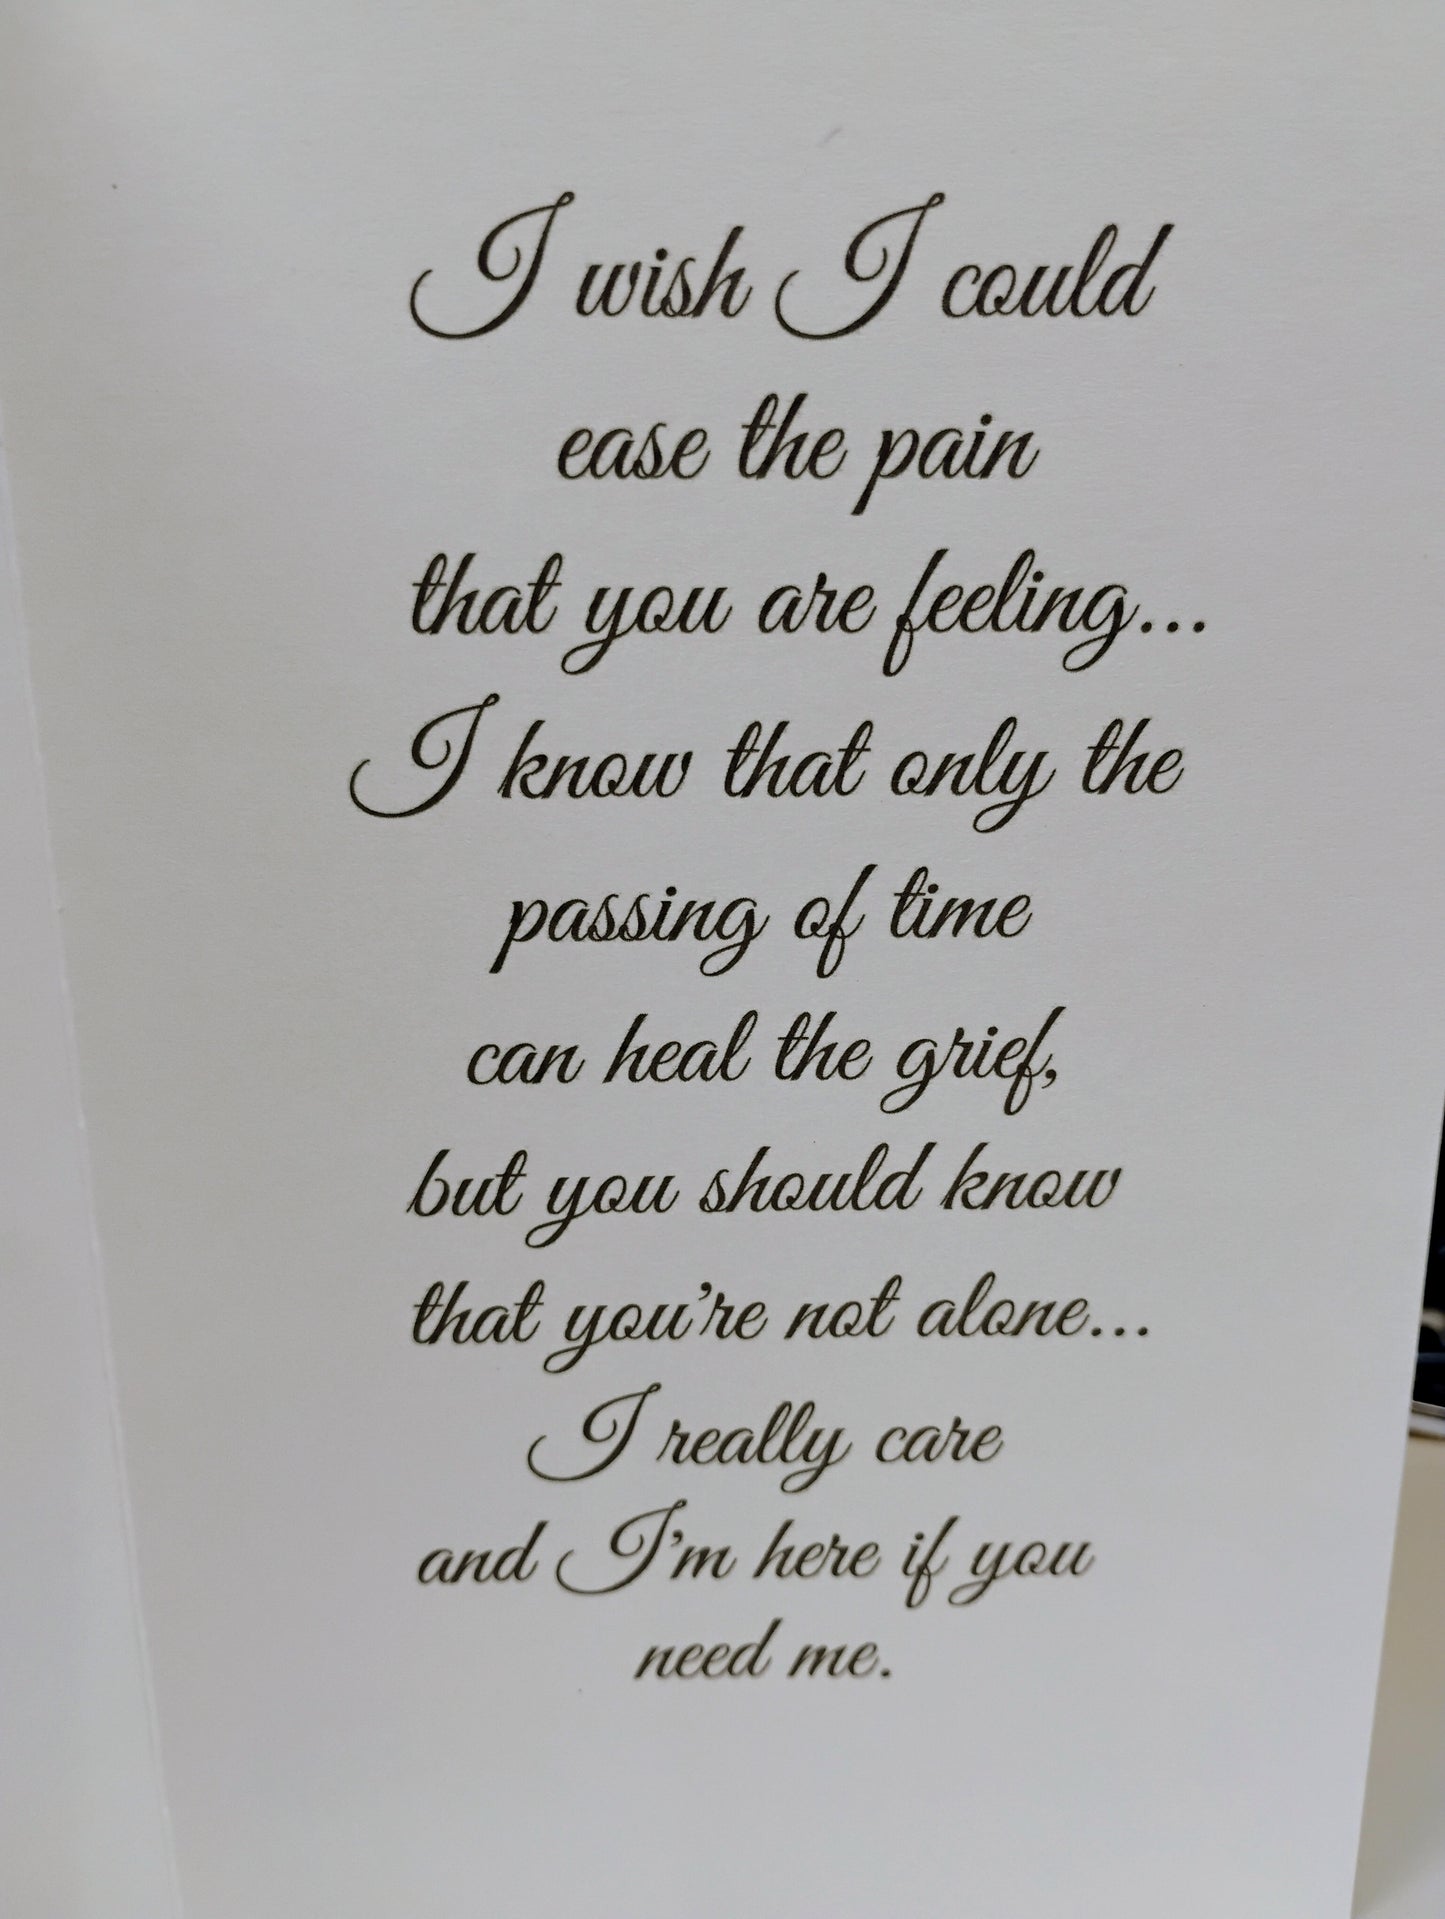 I wish I could
ease the pain
that you are feeling...
I know that only the
passing of time
can heal the grief,
but you should know
that you're not alone...
I really care
and I'm here if you
need me.